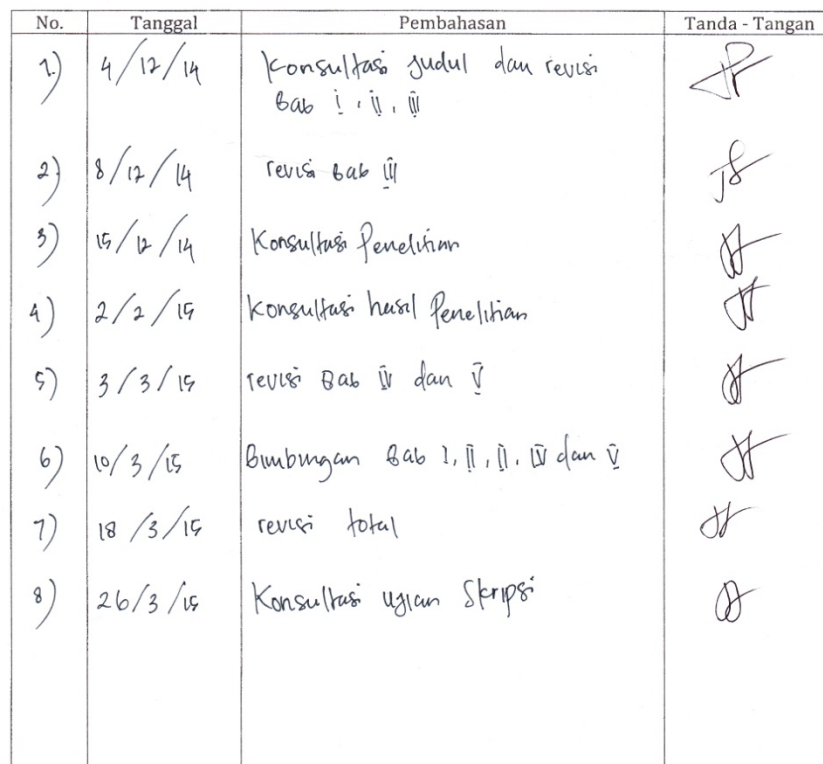 No. Tanggal Pembahasan Tanda - Tangan
1) 4/12/14 Konsultasi Judul dan revisi
Bab I, II, III
2) 8/12/14 revisi Bab III
3) 15/12/14 Konsultasi Penelitian
4) 2/2/15 Konsultasi hasil Penelitian
5) 3/3/15 revisi Bab IV dan V
6) 10/3/15 Bimbingan Bab I, II, II, IV dan V
7) 18/3/15 revisi total
8) 26/3/15 Konsultasi Ujian Skripsi